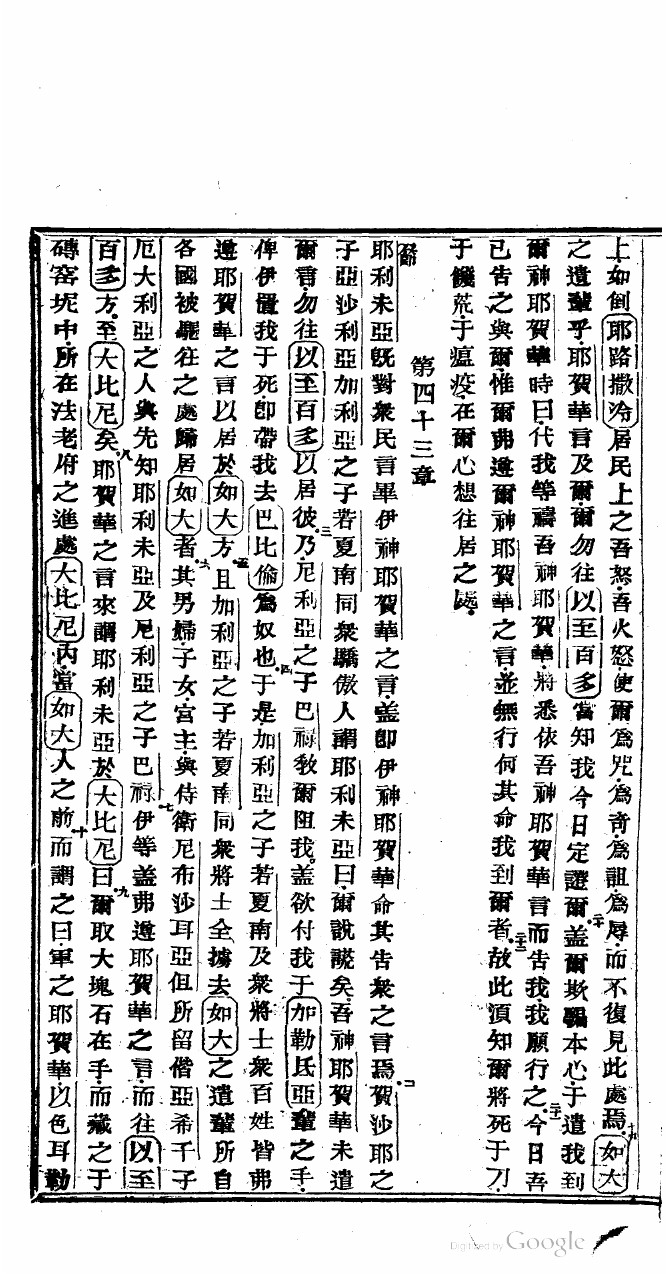 上如倒耶路撒冷居民上之吾怒吾火怒使爾為咒為奇為詛為辱而不復見此處焉十九如大
之遺輩乎耶賀華言及爾爾勿往以至百多當知我今日定證爾二十蓋爾欺騙本心于遣我到
爾神耶賀華時曰代我等禱吾神耶賀華將悉依吾神耶賀華言而告我我願行之二十一今日吾
已告之與爾惟爾弗遵爾神耶賀華之言並無行何其命我到爾者二十二故此須知爾將死于刀
于饑荒于瘟疫在爾心想往居之處
第四十三章
一節耶利未亞既對眾民言畢伊神耶賀華之言蓋即伊神耶賀華命其告眾之言焉二賀沙耶之
子亞沙利亞加利亞之子若夏南同眾驕傲人謂耶利未亞曰爾說謊矣吾神耶賀華未遣
爾言勿往以至百多以居彼三乃尼利亞之子巴祿教爾阻我蓋欲付我于加勒氐亞輩之手
俾伊置我于死即帶我去巴比倫為奴也四于是加利亞之子若夏南及眾將士眾百姓皆弗
遵耶賀華之言以居於如大方五且加利亞之子若夏南同眾將士全擄去如大之遺輩所自
各國被驅往之處歸居如大者六其男婦子女宮主與侍衛尼布沙耳亞但所留偕亞希千子
厄大利亞之人與先知耶利未亞及尼利亞之子巴祿七伊等蓋弗遵耶賀華之言而往以至
百多方至大比尼矣八耶賀華之言來謂耶利未亞於大比尼曰九爾取大塊石在手而藏之于
磚窑坭中所在法老府之進處大比尼內當如大人之前十而謂之曰軍之耶賀華以色耳勒
Digitized by Google